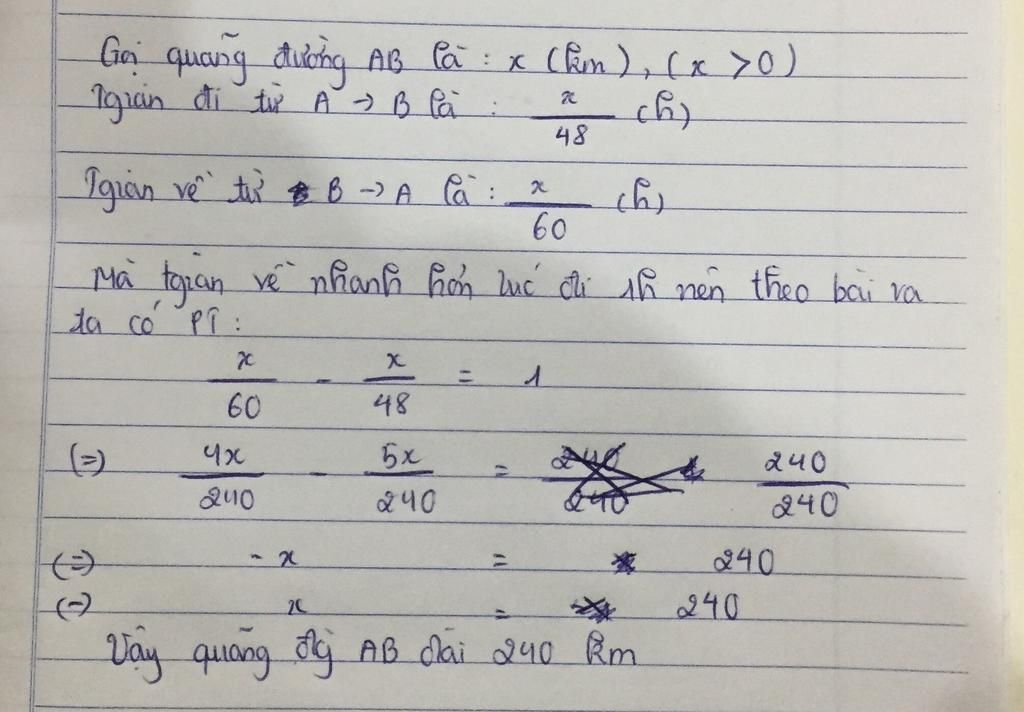 Gọi quãng đường AB là : x (km), (x > 0)
Tgian đi từ A → B là : x/48 (h)
Tgian về từ B → A là : x/60 (h)
Mà tgian về nhanh hơn lúc đi 1h nên theo bài ra
ta có PT :
x/60 - x/48 = 1
(=) 4x/240 - 5x/240 = 240/240
(=) - x = 240
(=) x = 240
Vậy quãng đg AB dài 240 km